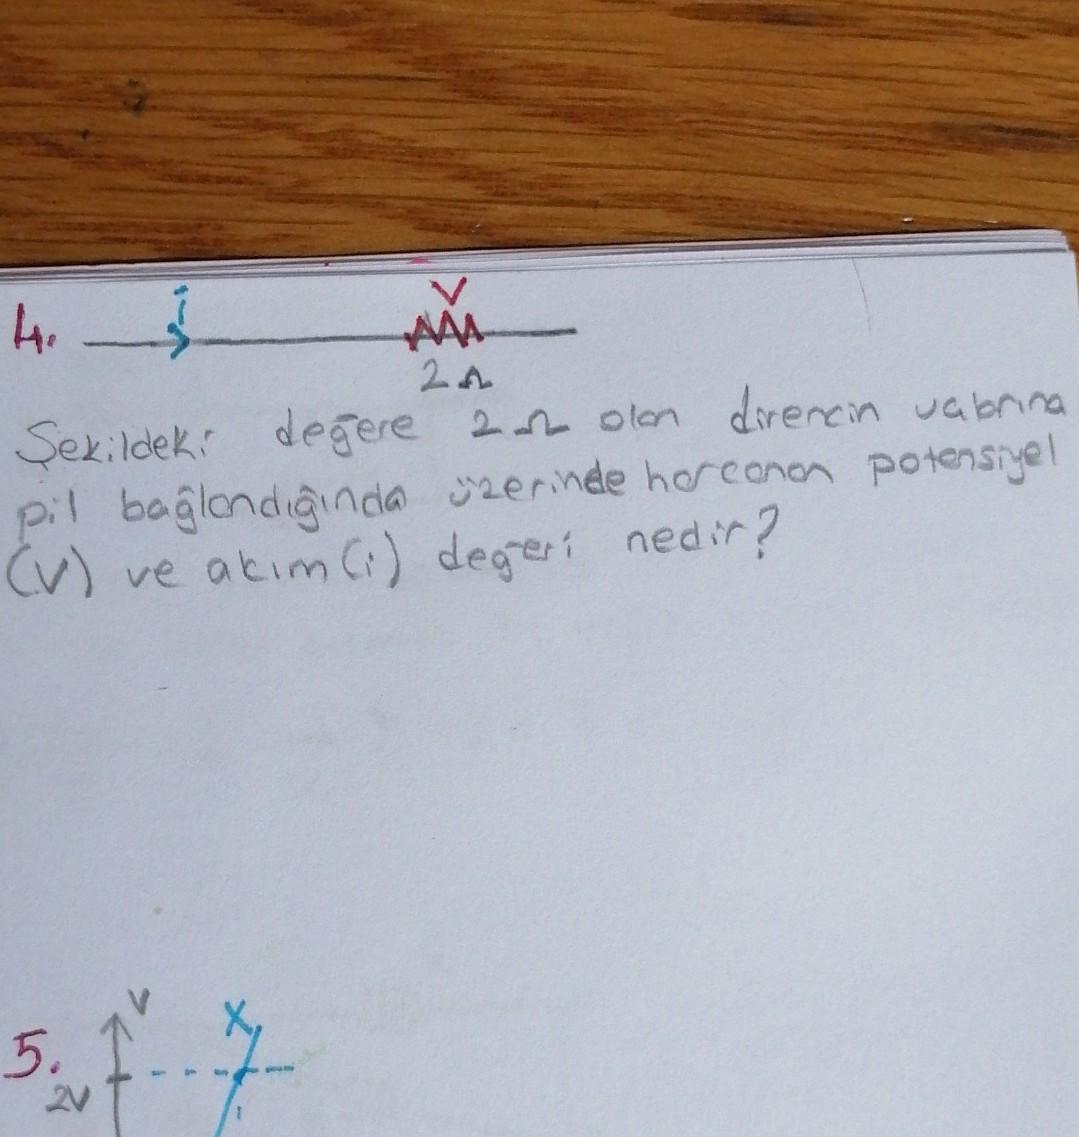 4.
i
V
2Ω
Şekildeki değere 2Ω olan direncin
pil bağlandığında üzerinde harcanan potensiyel
(V) ve akım (i) değeri nedir?
5.
V
X
2V